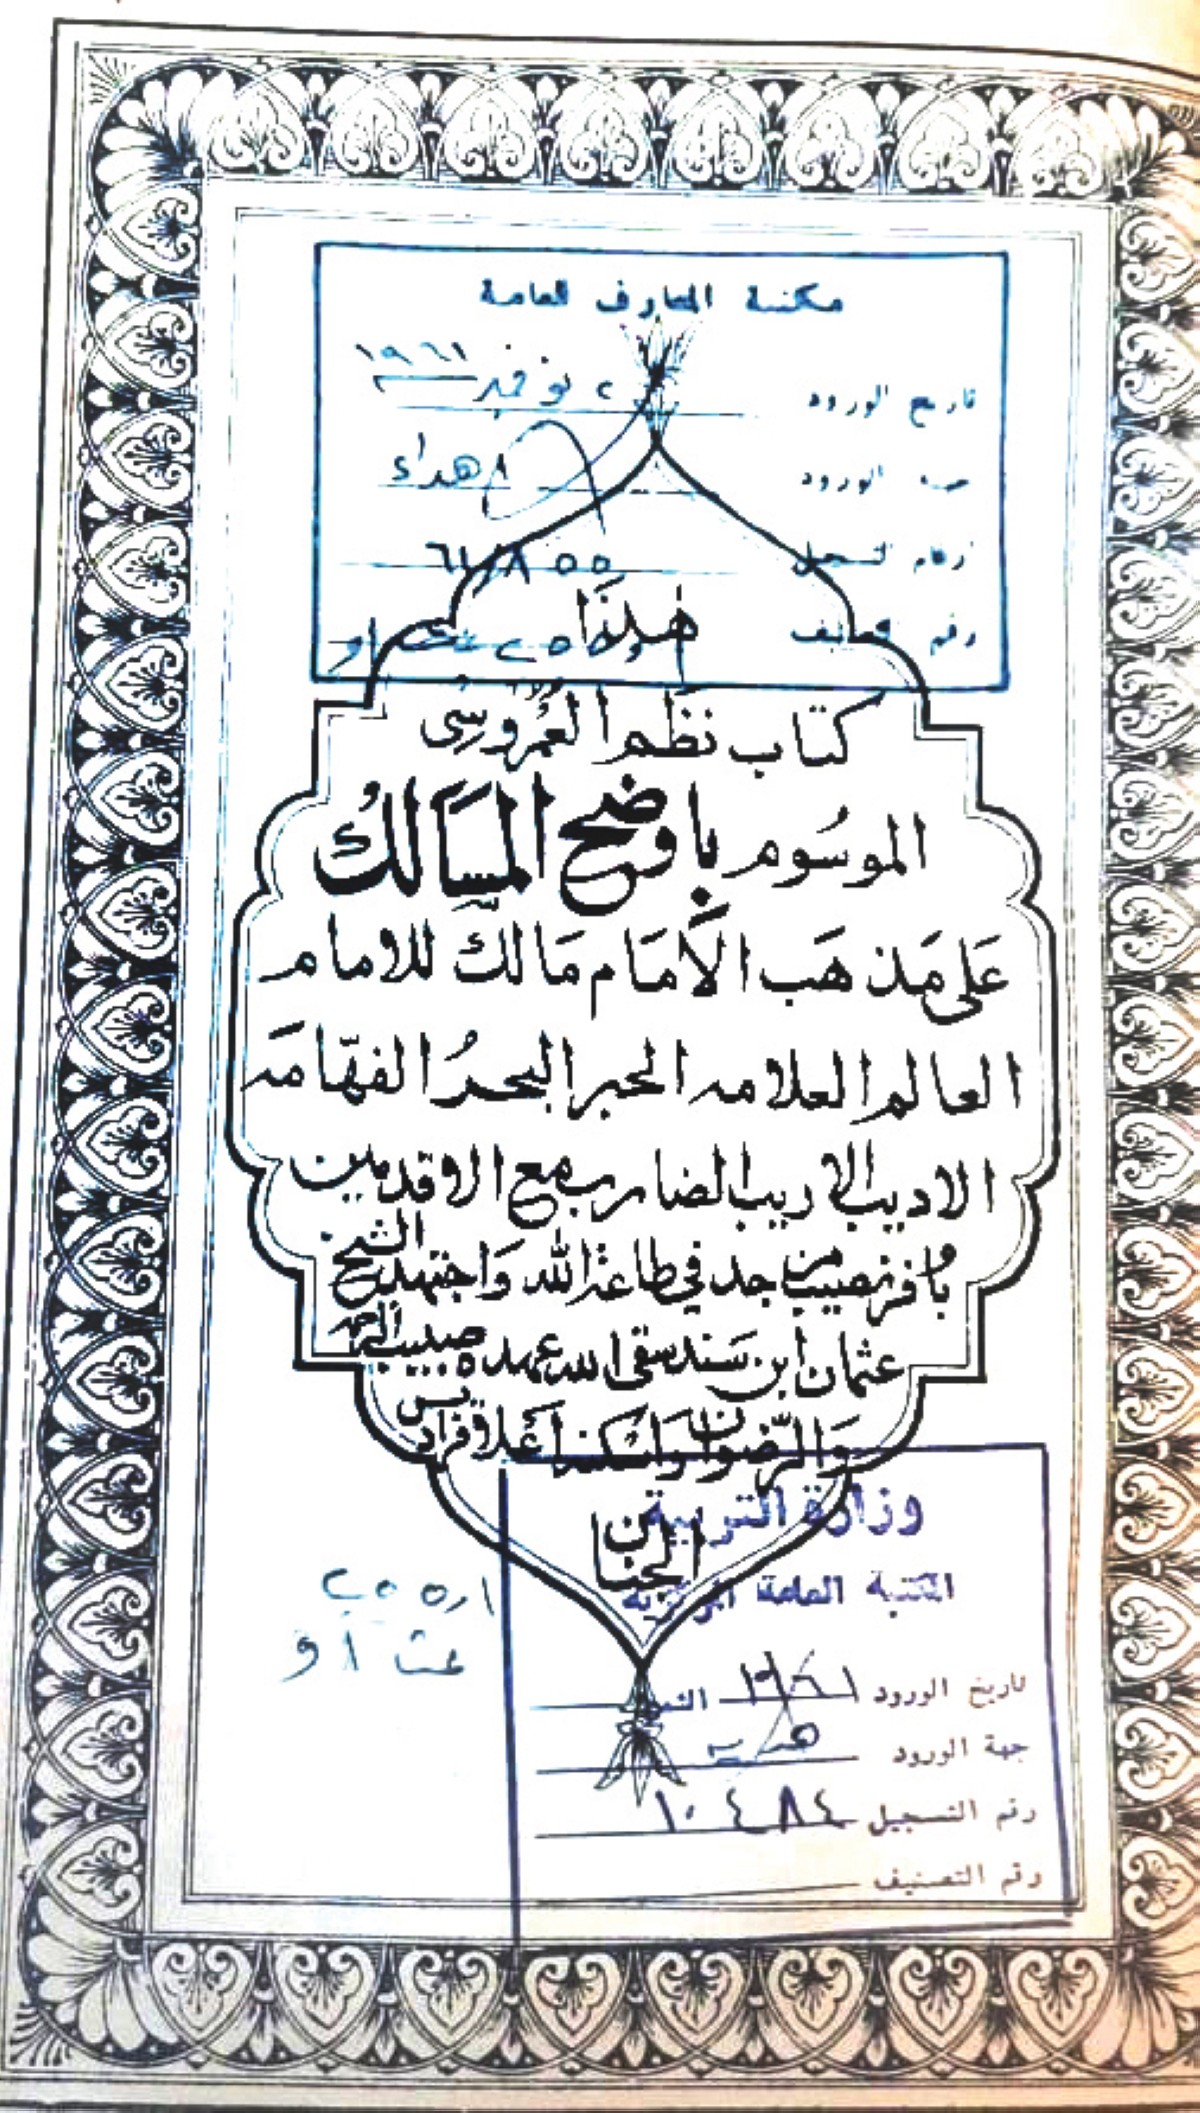 مكتبة المعارف العامة
تاريخ الورود ٢ نوفمبر ١٩٦١
جهة الورود اهداء
ارقام التسجيل ٦١/٨٥٥
رقم التصنيف
هذا
كتاب نظم العمروسي
الموسوم باوضح المسالك
على مذهب الامام مالك للامام
العالم العلامه الحبر البحر الفهّامه
الاديب الاريب الضارب مع الاقدمين
باوفر نصيب من جد في طاعة الله واجتهد الشيخ
عثمان ابن سند سقى الله عهده صبيب الرحمة
والرّضوان واسكنه اعلا فراديس
الجنان
وزارة التربية
المكتبة العامة المركزية
تاريخ الورود ١٩٦١
جهة الورود هدية
رقم التسجيل ١٠٤٨٤
رقم التصنيف
٢٥٥ر١
عث أو